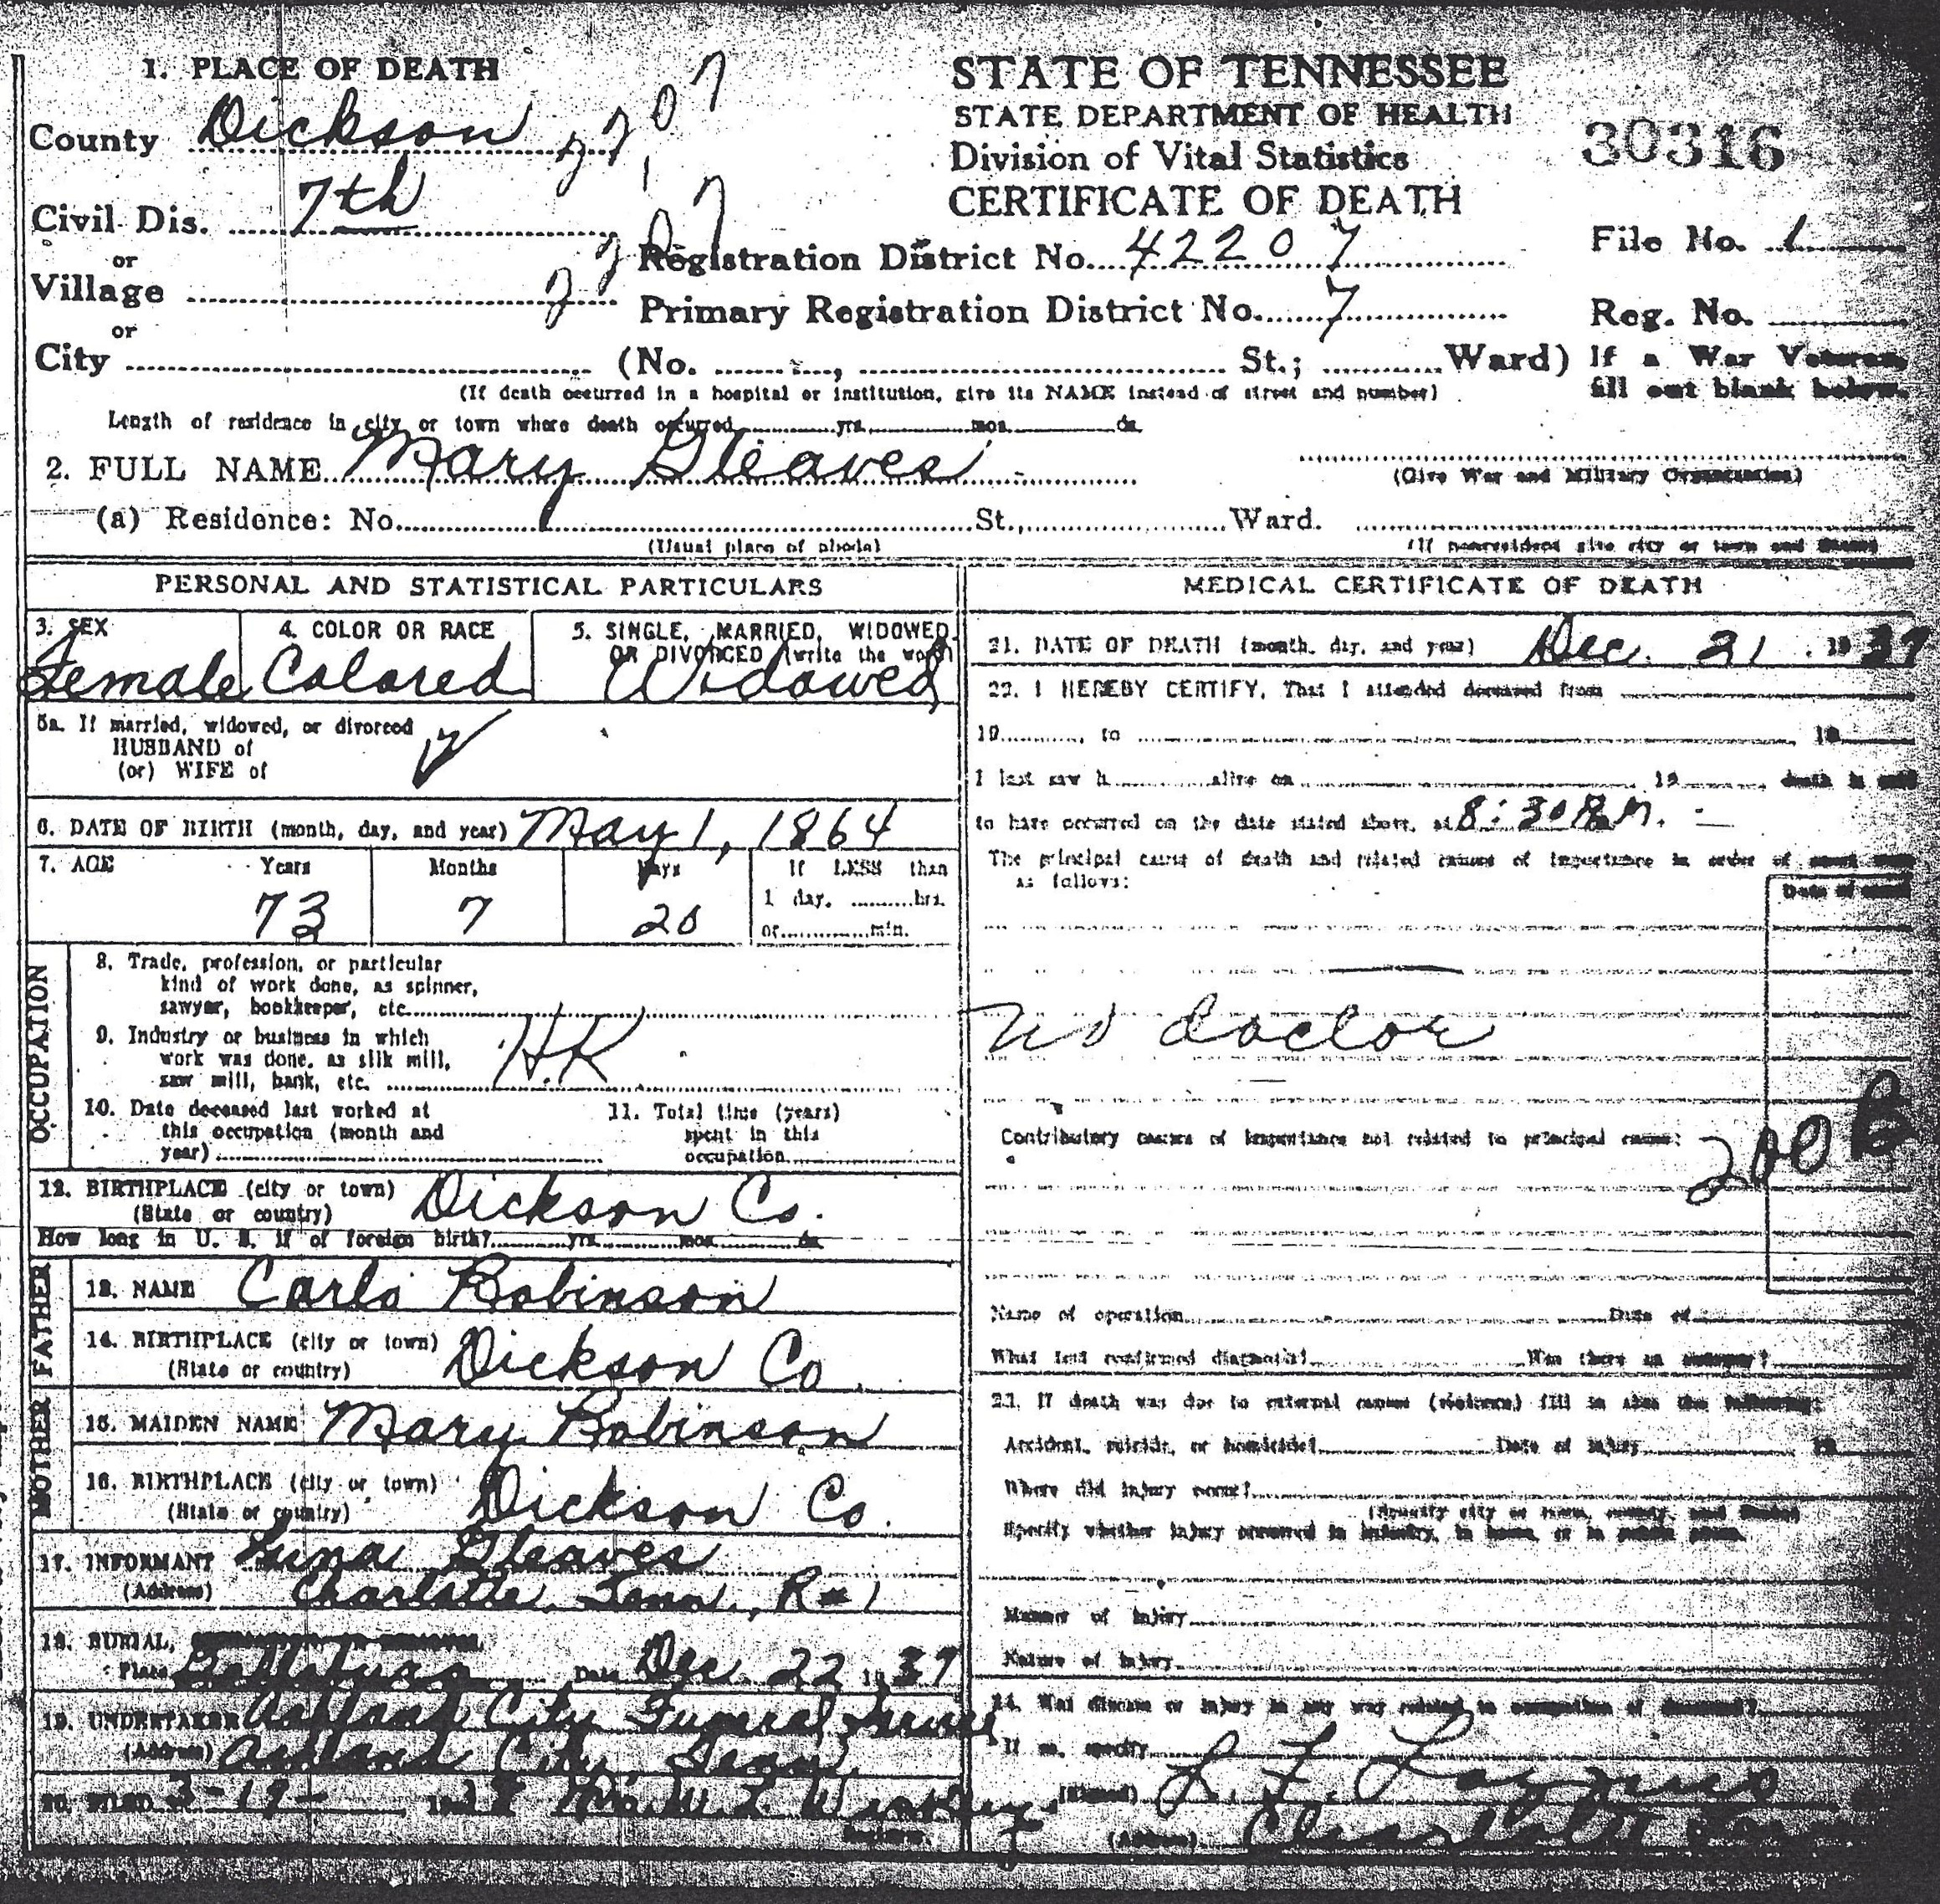 1. PLACE OF DEATH
County Dickson
Civil Dis. 7th
or
Village
or
City (No. , St.; Ward)
STATE OF TENNESSEE
STATE DEPARTMENT OF HEALTH
Division of Vital Statistics
CERTIFICATE OF DEATH
30316
Registration District No. 42207
File No. 1
Primary Registration District No. 7
Reg. No.
If a War Veteran,
fill out blank below.
(If death occurred in a hospital or institution, give its NAME instead of street and number)
Length of residence in city or town where death occurred yrs. mos. ds.
2. FULL NAME Mary Gleaves
(Give War and Military Organization)
(a) Residence: No. St., Ward.
(Usual place of abode) (If nonresident give city or town and State)
PERSONAL AND STATISTICAL PARTICULARS
3. SEX 4. COLOR OR RACE 5. SINGLE, MARRIED, WIDOWED,
OR DIVORCED (write the word)
Female Colored Widowed
5a. If married, widowed, or divorced
HUSBAND of
(or) WIFE of
6. DATE OF BIRTH (month, day, and year) May 1, 1864
7. AGE Years Months Days If LESS than
1 day, hrs.
or min.
73 7 20
OCCUPATION
8. Trade, profession, or particular
kind of work done, as spinner,
sawyer, bookkeeper, etc.
9. Industry or business in which
work was done, as silk mill,
saw mill, bank, etc. H.K
10. Date deceased last worked at
this occupation (month and
year)
11. Total time (years)
spent in this
occupation
12. BIRTHPLACE (city or town) Dickson Co.
(State or country)
How long in U. S. if of foreign birth? yrs. mos. ds.
FATHER
13. NAME Carlo Robinson
14. BIRTHPLACE (city or town) Dickson Co.
(State or country)
MOTHER
15. MAIDEN NAME Mary Robinson
16. BIRTHPLACE (city or town) Dickson Co.
(State or country)
17. INFORMANT Gleaves
(Address) Charlotte, Tenn., R#1
18. BURIAL,
Place Date Dec. 22 1937
19. UNDERTAKER Ashland City Funeral
(Address) Ashland City, Tenn.
20. FILED 3-19- 1938 Mrs. W. L.
MEDICAL CERTIFICATE OF DEATH
21. DATE OF DEATH (month, day, and year) Dec. 21, 1937
22. I HEREBY CERTIFY, That I attended deceased from
19 , to 19
I last saw h alive on , 19 , death is said
to have occurred on the date stated above, at 8:30 P.M.
The principal cause of death and related causes of importance in order of
as follows:
Date of onset
no doctor
200 B
Contributory causes of importance not related to principal cause:
Name of operation Date of
What test confirmed diagnosis? Was there an autopsy?
23. If death was due to external causes (violence) fill in also the following:
Accident, suicide, or homicide? Date of injury 19
Where did injury occur?
(Specify city or town, county, and State)
Specify whether injury occurred in industry, in home, or in public place.
Manner of injury
Nature of injury
24. Was disease or injury in any way related to occupation of deceased?
If so, specify
(Signed) L. F.
(Address) Charlotte